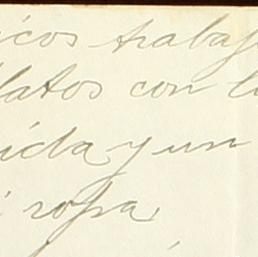 icos trabaj
latos con l
ida y un
i ropa